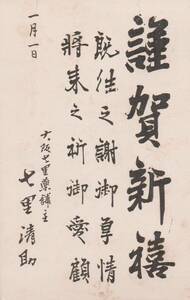 謹賀新禧
既往之謝御尊情
将来之祈御愛顧
一月一日
大阪七里薬舗主
七里清助